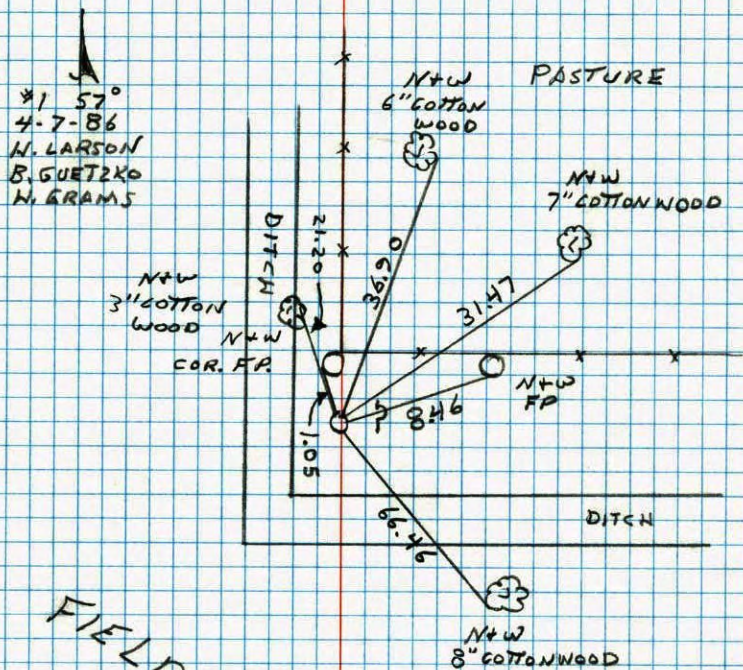 #1 57°
4-7-86
W. LARSON
B. GUETZKO
W. GRAMS
N+W
6" COTTON
WOOD
PASTURE
N+W
7" COTTONWOOD
DITCH
21.20
36.90
31.47
N+W
3" COTTON
WOOD
N+W
COR. F.P.
N+W
FP
8.46
1.05
66.46
DITCH
FIELD
N+W
8" COTTONWOOD